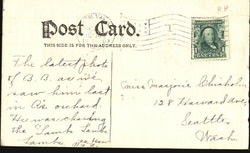 Post Card.
THIS SIDE IS FOR THE ADDRESS ONLY.
The latest photo
of B.B. as we
saw him last
in Co's orchard
He was chasing
the "Lamb Lamb
Lamb"
Miss Marjorie Chisholm
128 Harvard Ave
Seattle,
Wash